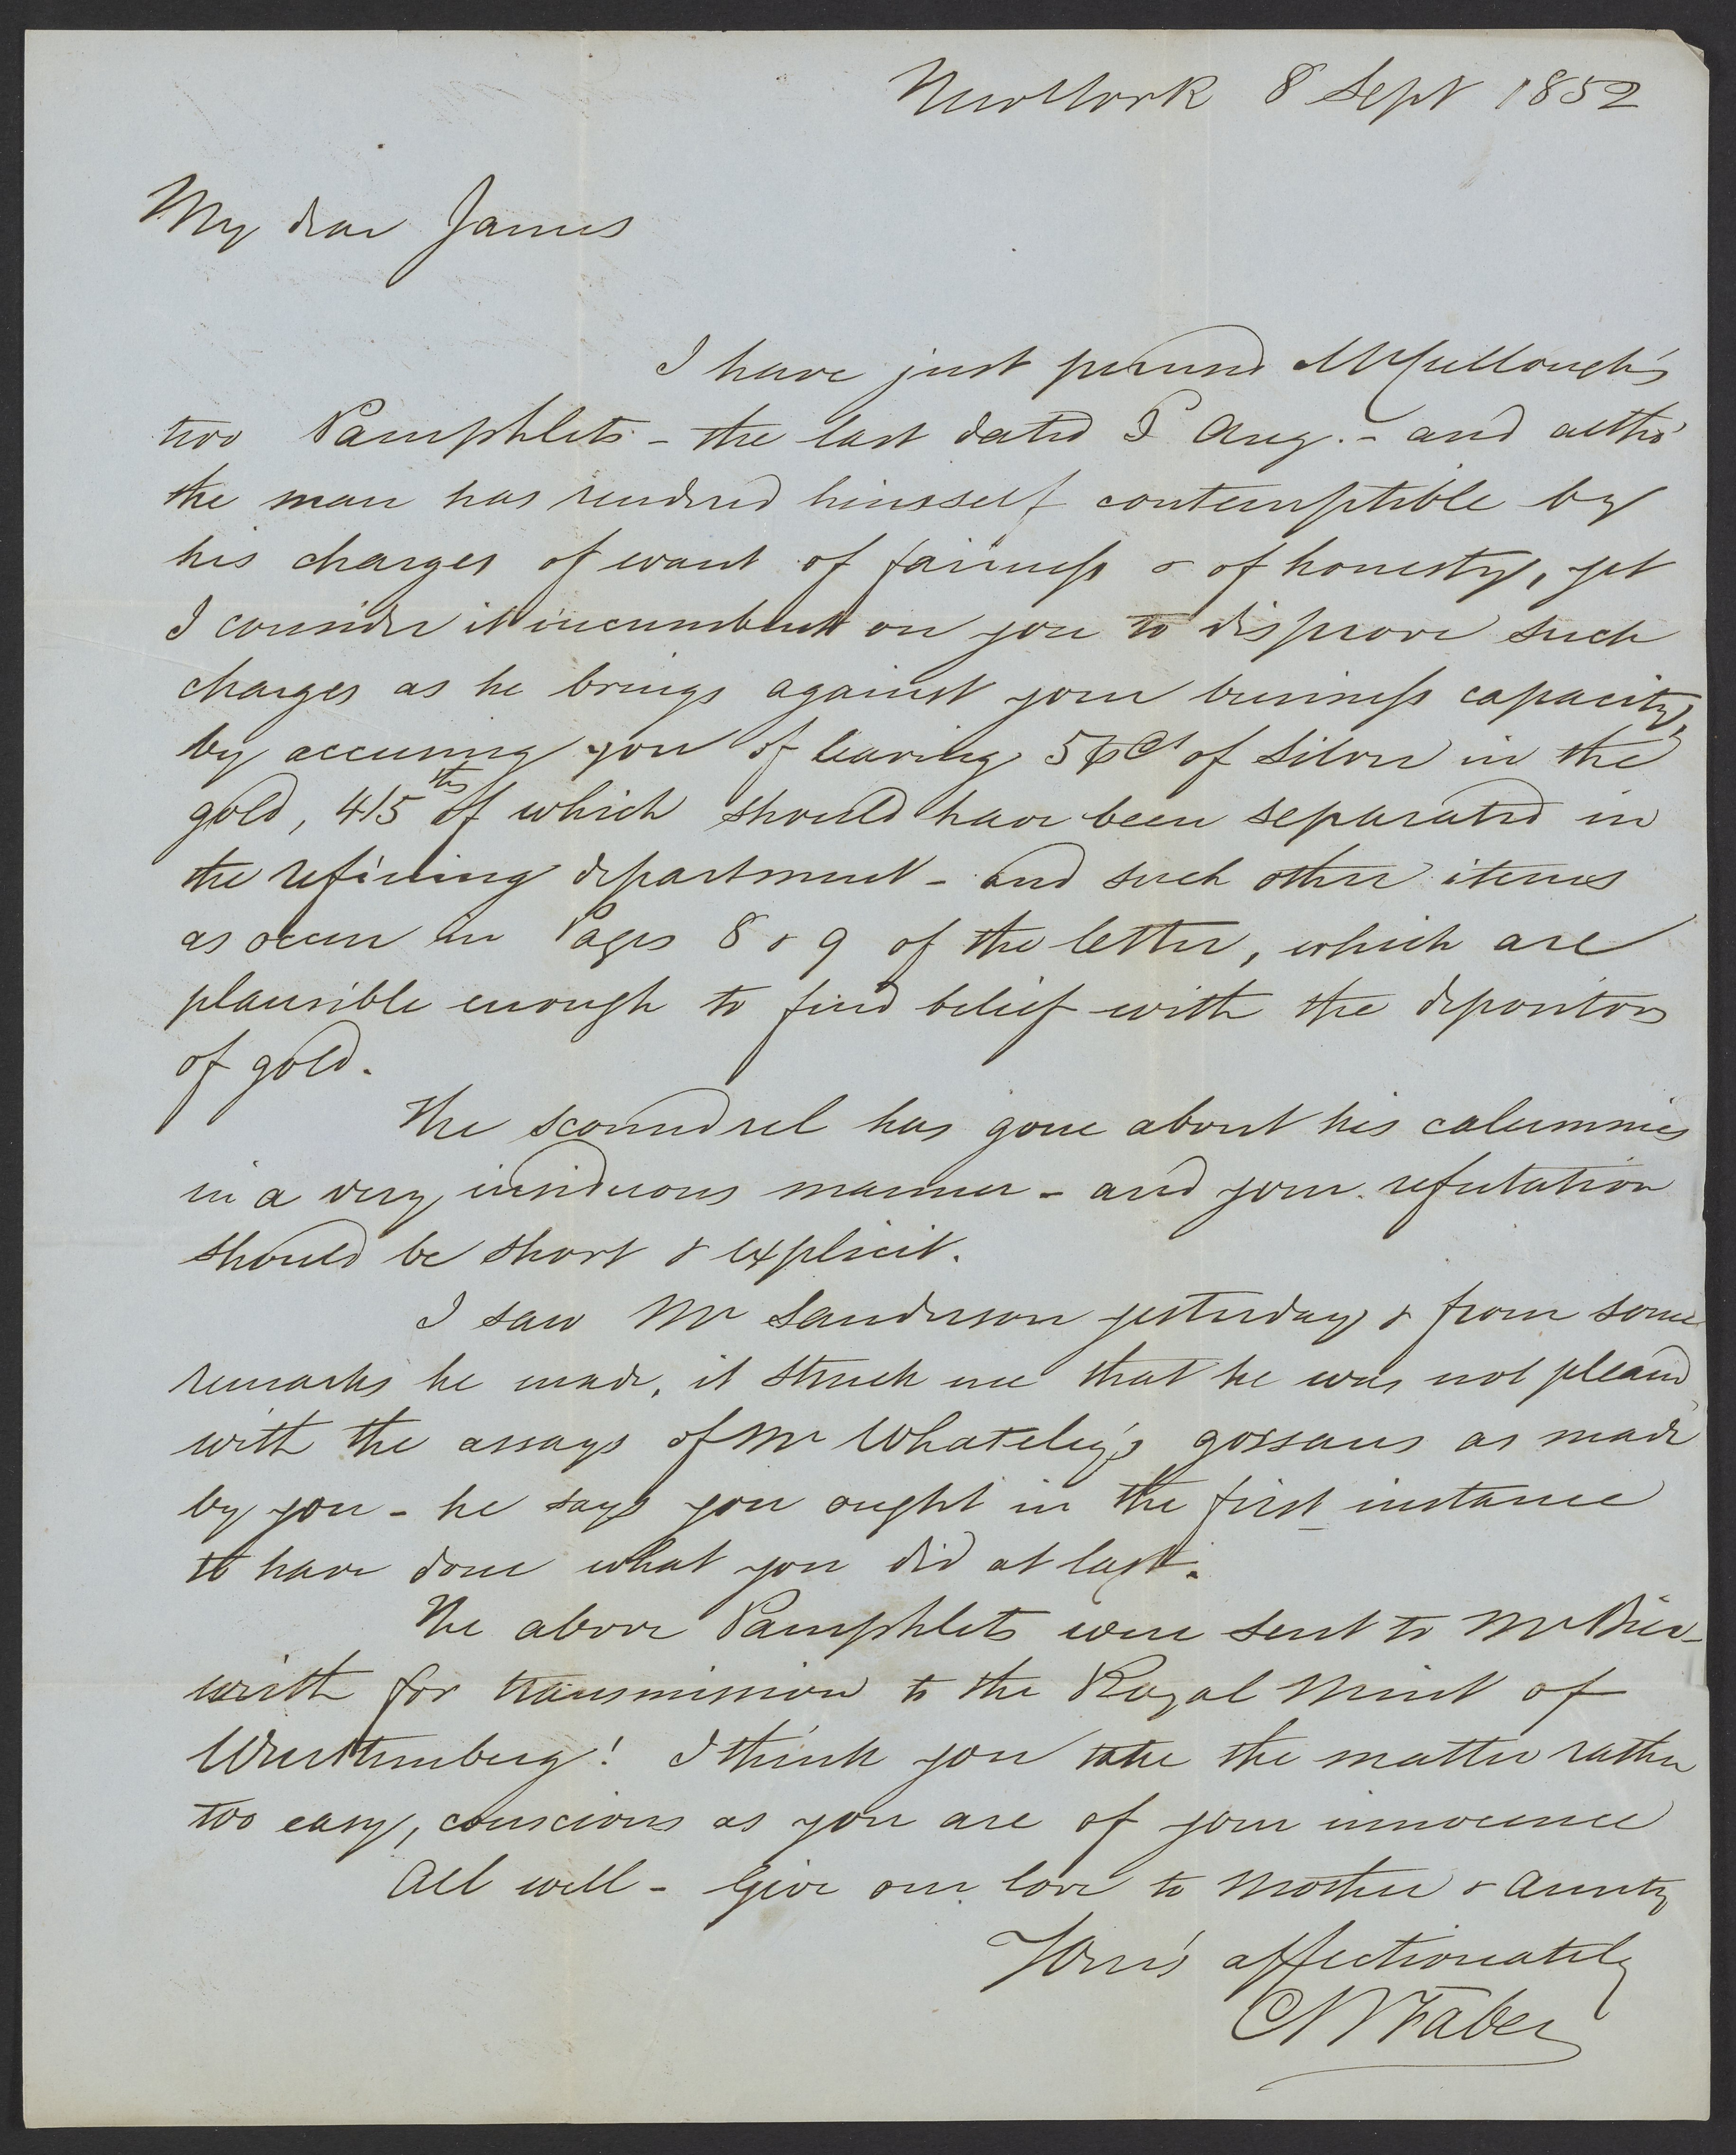 New York 8 Sept 1852
My dear James
I have just perused McCullough's
two Pamphlets - the last dated Aug. - and altho'
the man has rendered himself contemptible by
his charges of want of fairness & of honesty, yet
I consider it incumbent on you to disprove such
charges as he brings against your business capacity,
by accusing you of leaving 5 p Ct of silver in the
gold, 4/5ths of which should have been separated in
the refining department - and such other items
as occur in Pages 8 & 9 of the letter, which are
plausible enough to find belief with the depositors
of gold.
The scoundrel has gone about his calumnies
in a very insiduous manner - and your refutation
should be short & explicit.
I saw Mr Sanderson yesterday & from some
remarks he made, it struck me that he was not pleased
with the assays of Mr Whateley's gossans as made
by you - he says you ought in the first instance
to have done what you did at last.
The above Pamphlets were sent to Mr Bier-
wirth for transmission to the Royal Mint of
Wurttemberg! I think you take the matter rather
too easy, conscious as you are of your innocence
All well - Give our love to Mother & Aunty
Your's affectionately
Faber